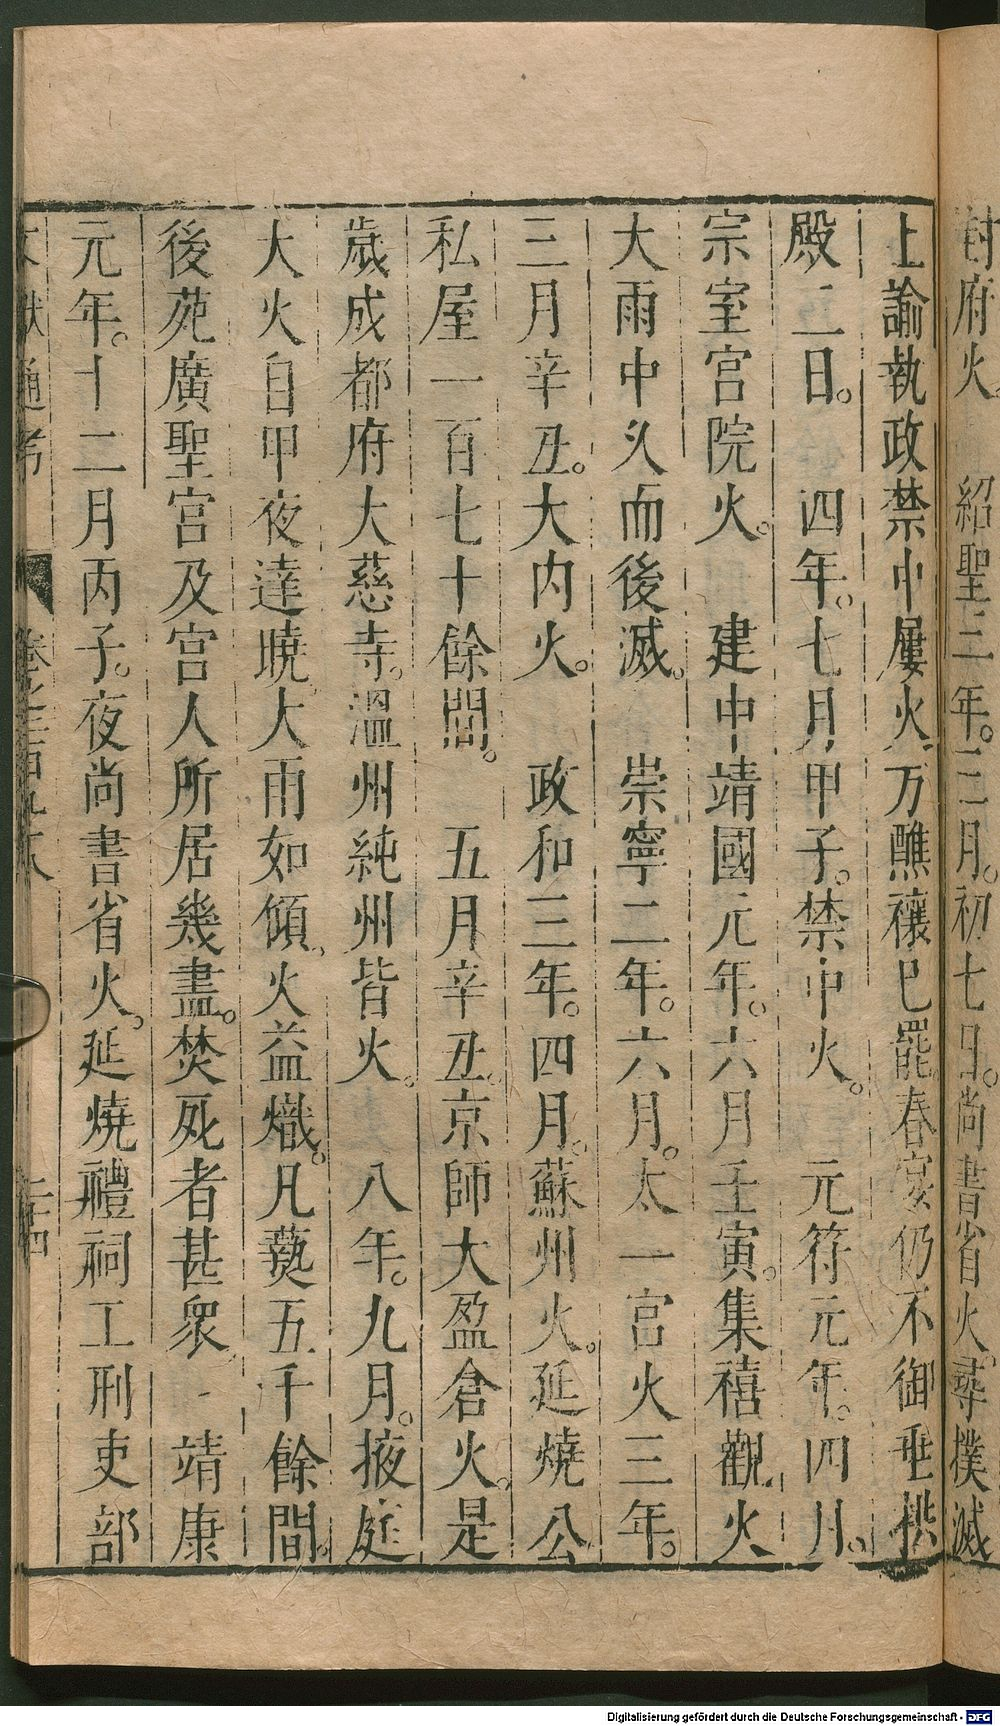 封府火。　紹聖三年。三月。初七日。尚書省火。尋撲滅
上諭執政禁中屢火方醮禳已罷春宴仍不御垂拱
殿三日。　四年。七月甲子。禁中火。　元符元年。四月。
宗室宮院火。　建中靖國元年。六月壬寅。集禧觀火
大雨中久而後滅。　崇寧二年。六月。太一宮火三年。
三月辛丑。大內火。　政和三年。四月。蘇州火。延燒公
私屋一百七十餘間。　五月辛丑。京師大盈倉火。是
歲成都府大慈寺。溫州純州皆火。　八年。九月。掖庭
大火自甲夜達曉。大雨如傾。火益熾。凡爇五千餘間。
後苑廣聖宮及宮人所居幾盡。焚死者甚眾　靖康
元年。十二月丙子。夜尚書省火。延燒禮祠工刑吏部
文獻通考　卷之二百九十八　二十四
Digitalisierung gefördert durch die Deutsche Forschungsgemeinschaft - DFG